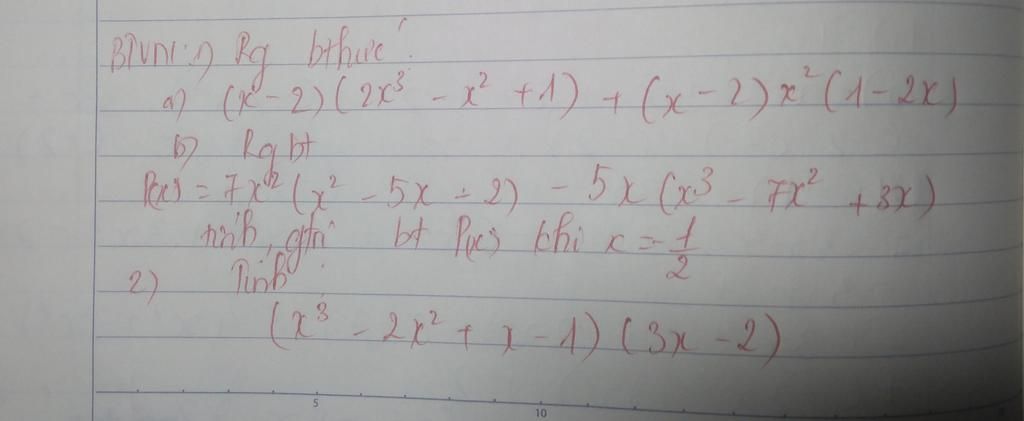 BTVN: 1) Rg bthức:
a) (x - 2)(2x³ - x² + 1) + (x - 2)x²(1 - 2x)
b) Rg bt
P(x) = 7x²(x² - 5x + 2) - 5x(x³ - 7x² + 3x)
tính gtrị bt P(x) khi x = -1/2
2) Tính
(x³ - 2x² + x - 1)(3x - 2)
5 10